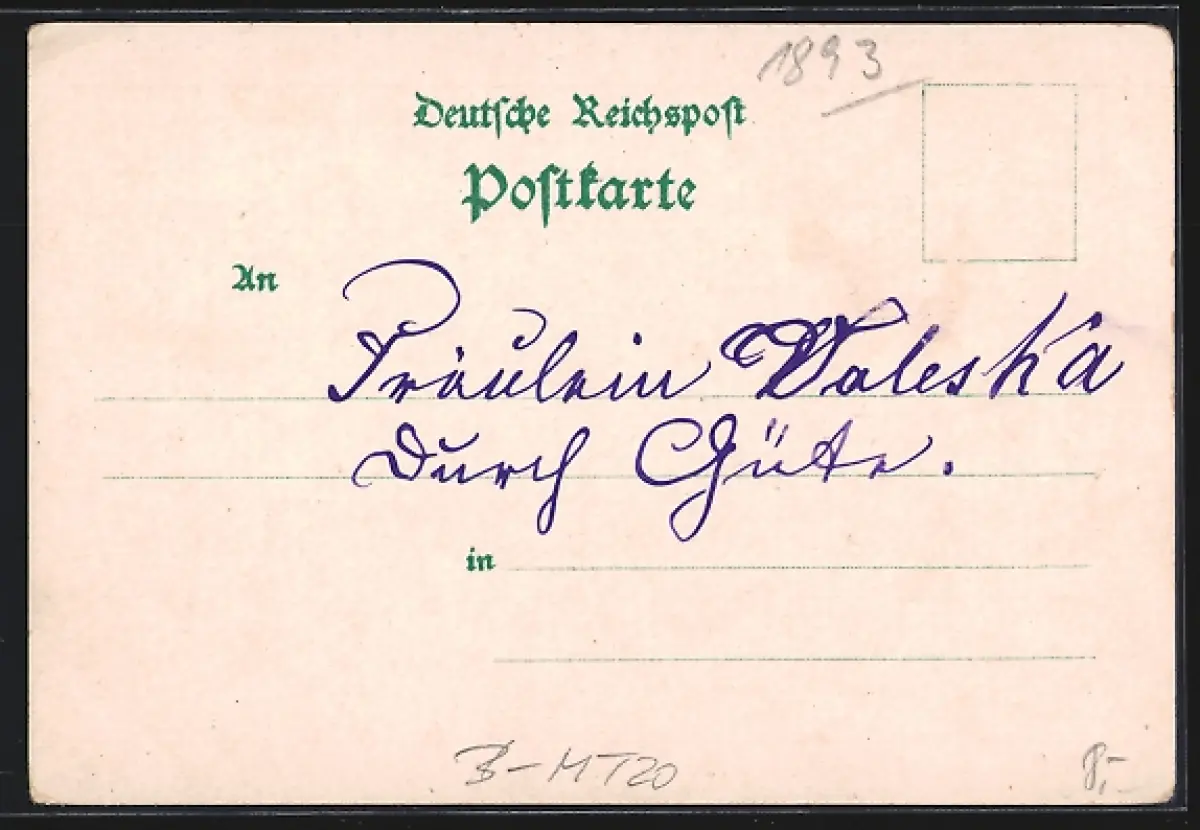 1893
Deutsche Reichspost
Postkarte
An
Fräulein Valeska
Durch Güte.
in
B-MT20
8,-